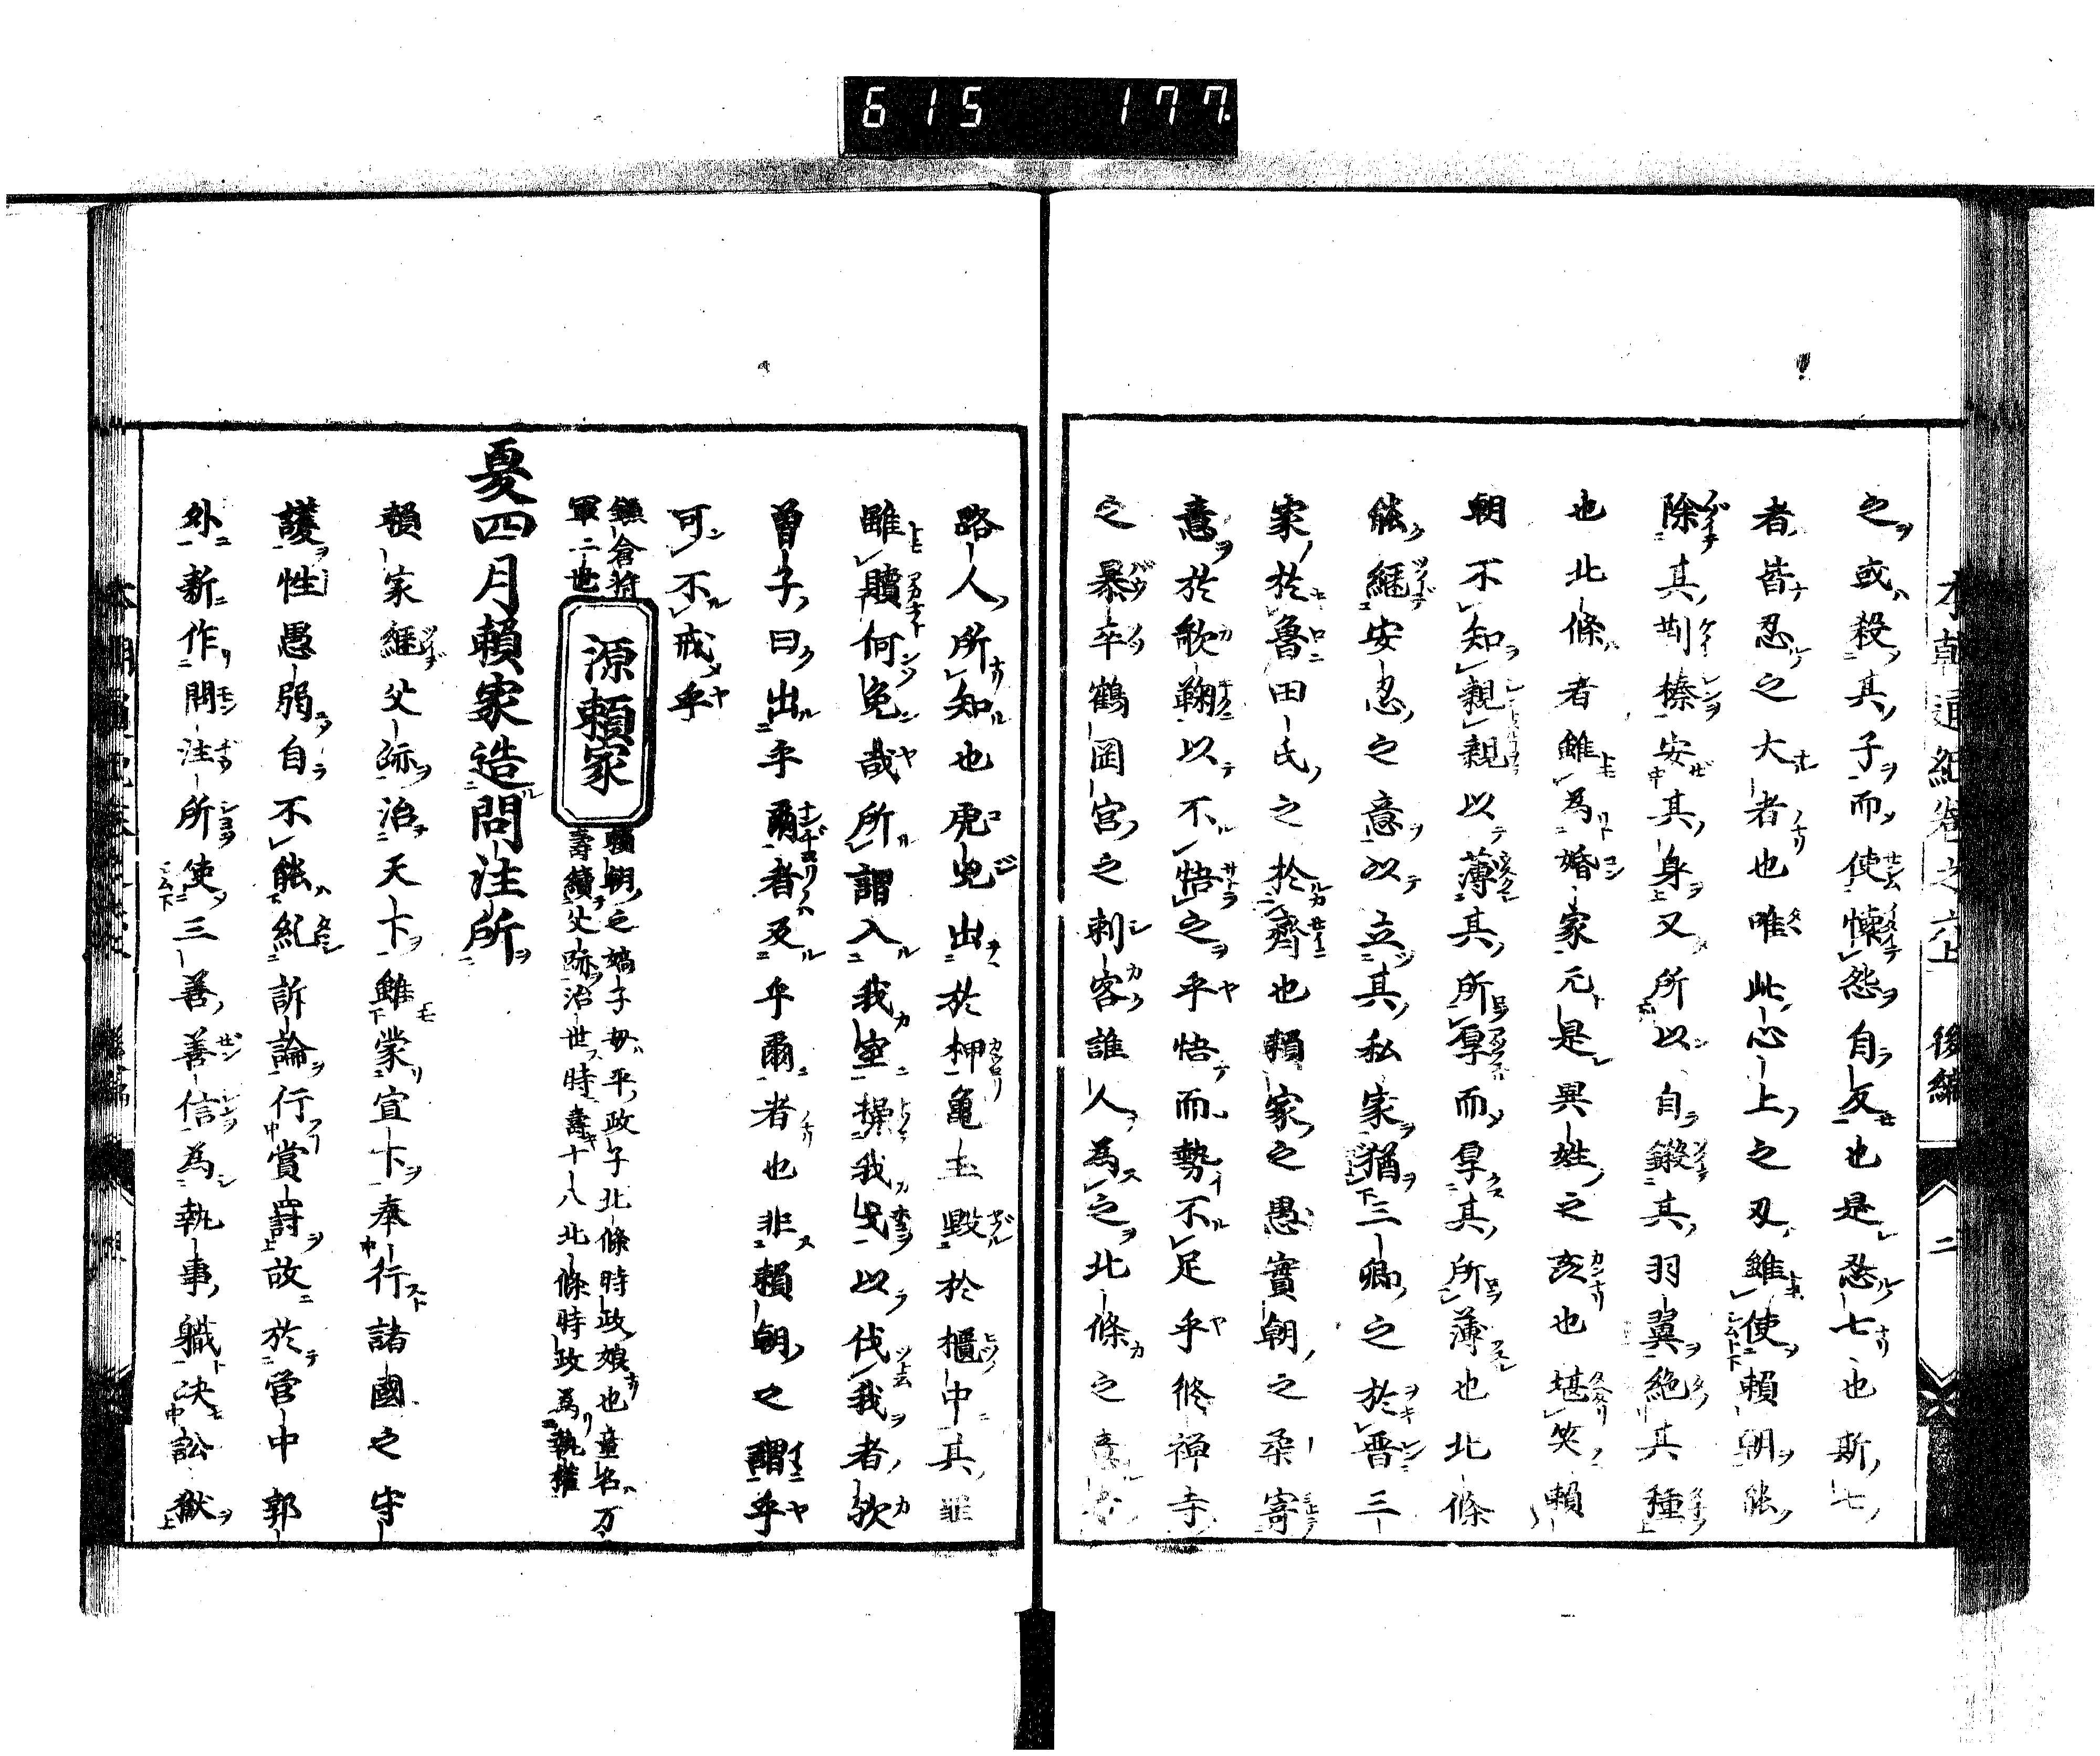 615 177
本朝通紀卷之六上 後編 二
之或殺其子而使懷怨自反也是忍七也斯七
者皆忍之大者也唯此心上之刃雖使賴朝能
除其荊榛安其身又所以自鍛其羽翼絶其種
也北條者雖為婚家元是異姓之亥也堪笑賴
朝不知親親以薄其所厚而厚其所薄也北條
能継安忍之意以立其私家猶三卿之於晋三
家於魯田氏之於齊也賴家之愚實朝之柔寄
意於歌鞠以不悟之乎悟而勢不足乎修禅寺
之暴卒鶴岡宮之刺客誰人為之北條之意
路人所知也虎兕出於柙亀玉毀於櫃中其罪
雖贖何免哉所謂入我室操我戈以伐我者欤
曽子曰出乎爾者反乎爾者也非賴朝之謂乎
可不戒乎
鎌倉将軍二世
源賴家
賴朝之嫡子母平政子北條時政娘也童名万
壽續父跡治世時壽十八北條時政為執權
夏四月賴家造問注所
賴家継父跡治天下雖蒙宣下奉行諸國之守
護性愚弱自不能糺訴論行賞罸故於營中郭
外新作問注所使三善善信為執事職决訟獄